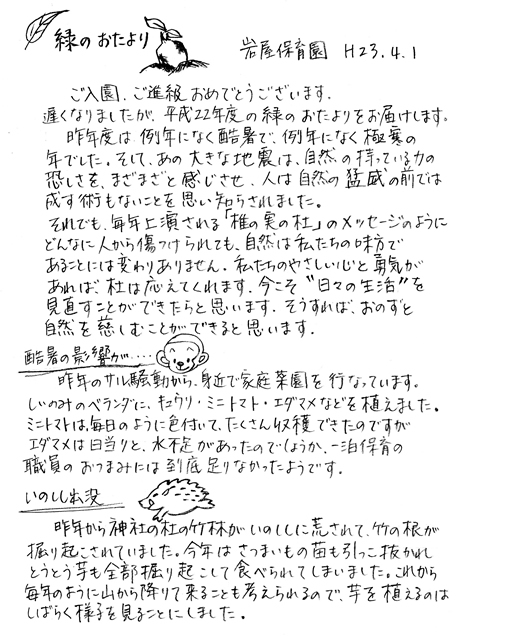 緑のおたより
岩屋保育園 H23.4.1
ご入園、ご進級おめでとうございます。
遅くなりましたが、平成22年度の緑のおたよりをお届けします。
昨年度は、例年になく酷暑で、例年になく極寒の
年でした。そして、あの大きな地震は、自然の持っている力の
恐しさを、まざまざと感じさせ、人は自然の猛威の前では
成す術もないことを思い知らされました。
それでも、毎年上演される「椎の実の杜」のメッセージのように
どんなに人から傷つけられても、自然は私たちの味方で
あることには変わりありません。私たちのやさしい心と勇気が
あれば、杜は応えてくれます。今こそ"日々の生活"を
見直すことができたらと思います。そうすれば、おのずと
自然を慈しむことができると思います。
酷暑の影響が....
昨年のサル騒動から、身近で家庭菜園を行なっています。
しいのみのベランダに、キュウリ・ミニトマト・エダマメなどを植えました。
ミニトマトは、毎日のように色付いて、たくさん収穫できたのですが
エダマメは日当りと、水不足があったのでしょうか、一泊保育の
職員のおつまみには到底足りなかったようです。
いのしし出没
昨年から神社の杜の竹林がいのししに荒されて、竹の根が
掘り起こされていました。今年はさつまいもの苗も引っこ抜かれ
とうとう芋も全部掘り起こして食べられてしまいました。これから
毎年のように山から降りて来ることも考えられるので、芋を植えるのは
しばらく様子を見ることにしました。